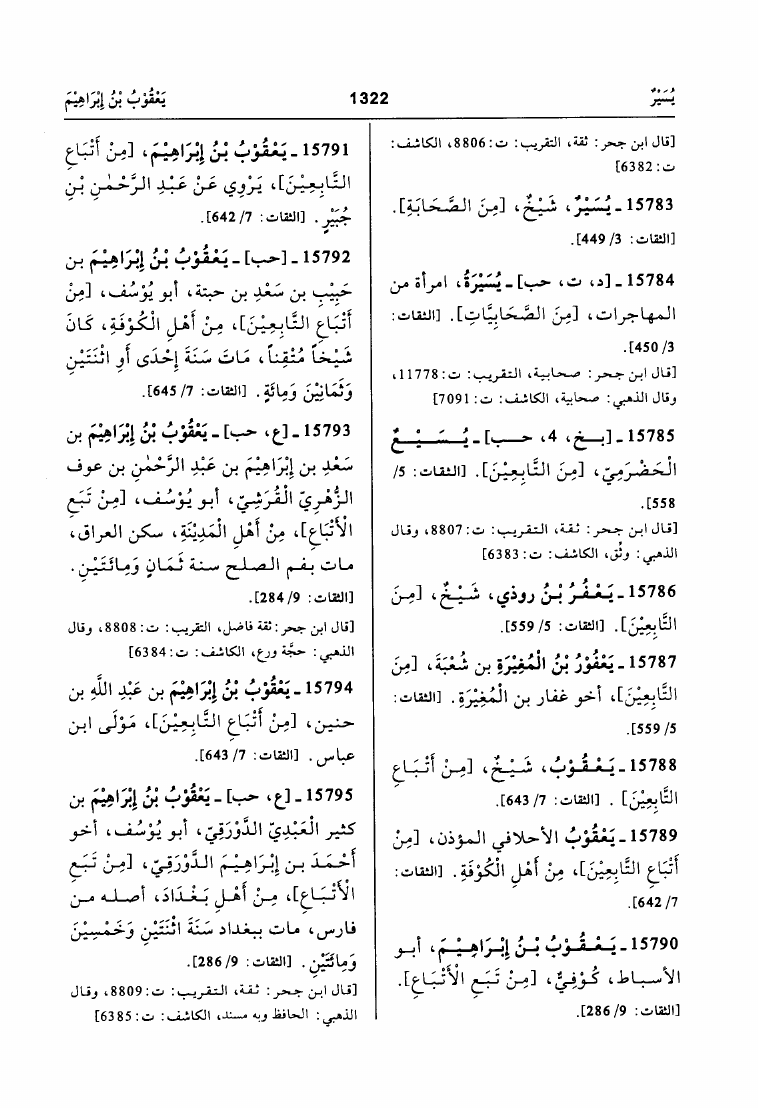 يُسَيْرٌ
1322
يَعْقُوْبُ بْنُ إِبْرَاهِيْمَ
[قال ابن حجر: ثقة، التقريب: ت: 8806، الكاشف:
ت: 6382]
15783 ـ يُسَيْرٌ، شَيْخٌ، [مِنَ الصَّحَابَةِ].
[الثقات: 3/ 449].
15784 ـ [د، ت، حب] ـ يُسَيْرَةُ، امرأة من
المهاجرات، [مِنَ الصَّحَابِيَّاتِ]. [الثقات:
3/ 450].
[قال ابن حجر: صحابية، التقريب: ت: 11778،
وقال الذهبي: صحابية، الكاشف: ت: 7091]
15785 ـ [بخ، 4، حب] ـ يُسَيْعٌ
الْحَضْرَمِيّ، [مِنَ التَّابِعِيْنَ]. [الثقات: 5/
558].
[قال ابن حجر: ثقة، التقريب: ت: 8807، وقال
الذهبي: وثق، الكاشف: ت: 6383]
15786 ـ يَعْفُرُ بْنُ روذي، شَيْخٌ، [مِنَ
التَّابِعِيْنَ]. [الثقات: 5/ 559].
15787 ـ يَعْفُوْرُ بْنُ الْمُغِيْرَةِ بن شُعْبَةَ، [مِنَ
التَّابِعِيْنَ]، أخو غفار بن الْمُغِيْرَةِ. [الثقات:
5/ 559].
15788 ـ يَعْقُوْبُ، شَيْخٌ، [مِنْ أَتْبَاعِ
التَّابِعِيْنَ] . [الثقات: 7/ 643].
15789 ـ يَعْقُوْبُ الأحلافي المؤذن، [مِنْ
أَتْبَاعِ التَّابِعِيْنَ]، مِنْ أَهْلِ الْكُوْفَةِ. [الثقات:
7/ 642].
15790 ـ يَعْقُوْبُ بْنُ إِبْرَاهِيْمَ، أبو
الأسباط، كُوْفِيٌّ، [مِنْ تَبَعِ الْأَتْبَاعِ].
[الثقات: 9/ 286].
15791 ـ يَعْقُوْبُ بْنُ إِبْرَاهِيْمَ، [مِنْ أَتْبَاعِ
التَّابِعِيْنَ]، يَرْوِي عَنْ عَبْدِ الرَّحْمٰنِ بْنِ
جُبَيْرٍ. [الثقات: 7/ 642].
15792 ـ [حب] ـ يَعْقُوْبُ بْنُ إِبْرَاهِيْمَ بن
حَبِيْبِ بن سَعْدِ بن حبتة، أبو يُوْسُف، [مِنْ
أَتْبَاعِ التَّابِعِيْنَ]، مِنْ أَهْلِ الْكُوْفَةِ، كَانَ
شَيْخاً مُتْقِناً، مَاتَ سَنَةَ إِحْدَى أو اثْنَتَيْنِ
وَثَمَانِيْنَ وَمِائَةٍ. [الثقات: 7/ 645].
15793 ـ [ع، حب] ـ يَعْقُوْبُ بْنُ إِبْرَاهِيْمَ بن
سَعْدِ بن إِبْرَاهِيْمَ بن عَبْدِ الرَّحْمٰنِ بن عوف
الزُّهْرِيّ الْقُرَشِيّ، أبو يُوْسُف، [مِنْ تَبَعِ
الْأَتْبَاعِ]، مِنْ أَهْلِ الْمَدِيْنَةِ، سكن العراق،
مات بفم الصلح سنة ثَمَانٍ وَمِائَتَيْنِ.
[الثقات: 9/ 284].
[قال ابن حجر: ثقة فاضل، التقريب: ت: 8808، وقال
الذهبي: حجَّة ورع، الكاشف: ت: 6384]
15794 ـ يَعْقُوْبُ بْنُ إِبْرَاهِيْمَ بن عَبْدِ اللَّهِ بن
حنين، [مِنْ أَتْبَاعِ التَّابِعِيْنَ]، مَوْلَى ابن
عباس. [الثقات: 7/ 643].
15795 ـ [ع، حب] ـ يَعْقُوْبُ بْنُ إِبْرَاهِيْمَ بن
كثير الْعَبْدِيّ الدَّوْرَقِيّ، أبو يُوْسُف، أخو
أَحْمَدَ بن إِبْرَاهِيْمَ الدَّوْرَقِيّ، [مِنْ تَبَعِ
الْأَتْبَاعِ]، مِنْ أَهْلِ بَغْدَادَ، أصله من
فارس، مات ببغداد سَنَةَ اثْنَتَيْنِ وَخَمْسِيْنَ
وَمِائَتَيْنِ. [الثقات: 9/ 286].
[قال ابن حجر: ثقة، التقريب: ت: 8809، وقال
الذهبي: الحافظ وبه مسند، الكاشف: ت: 6385]